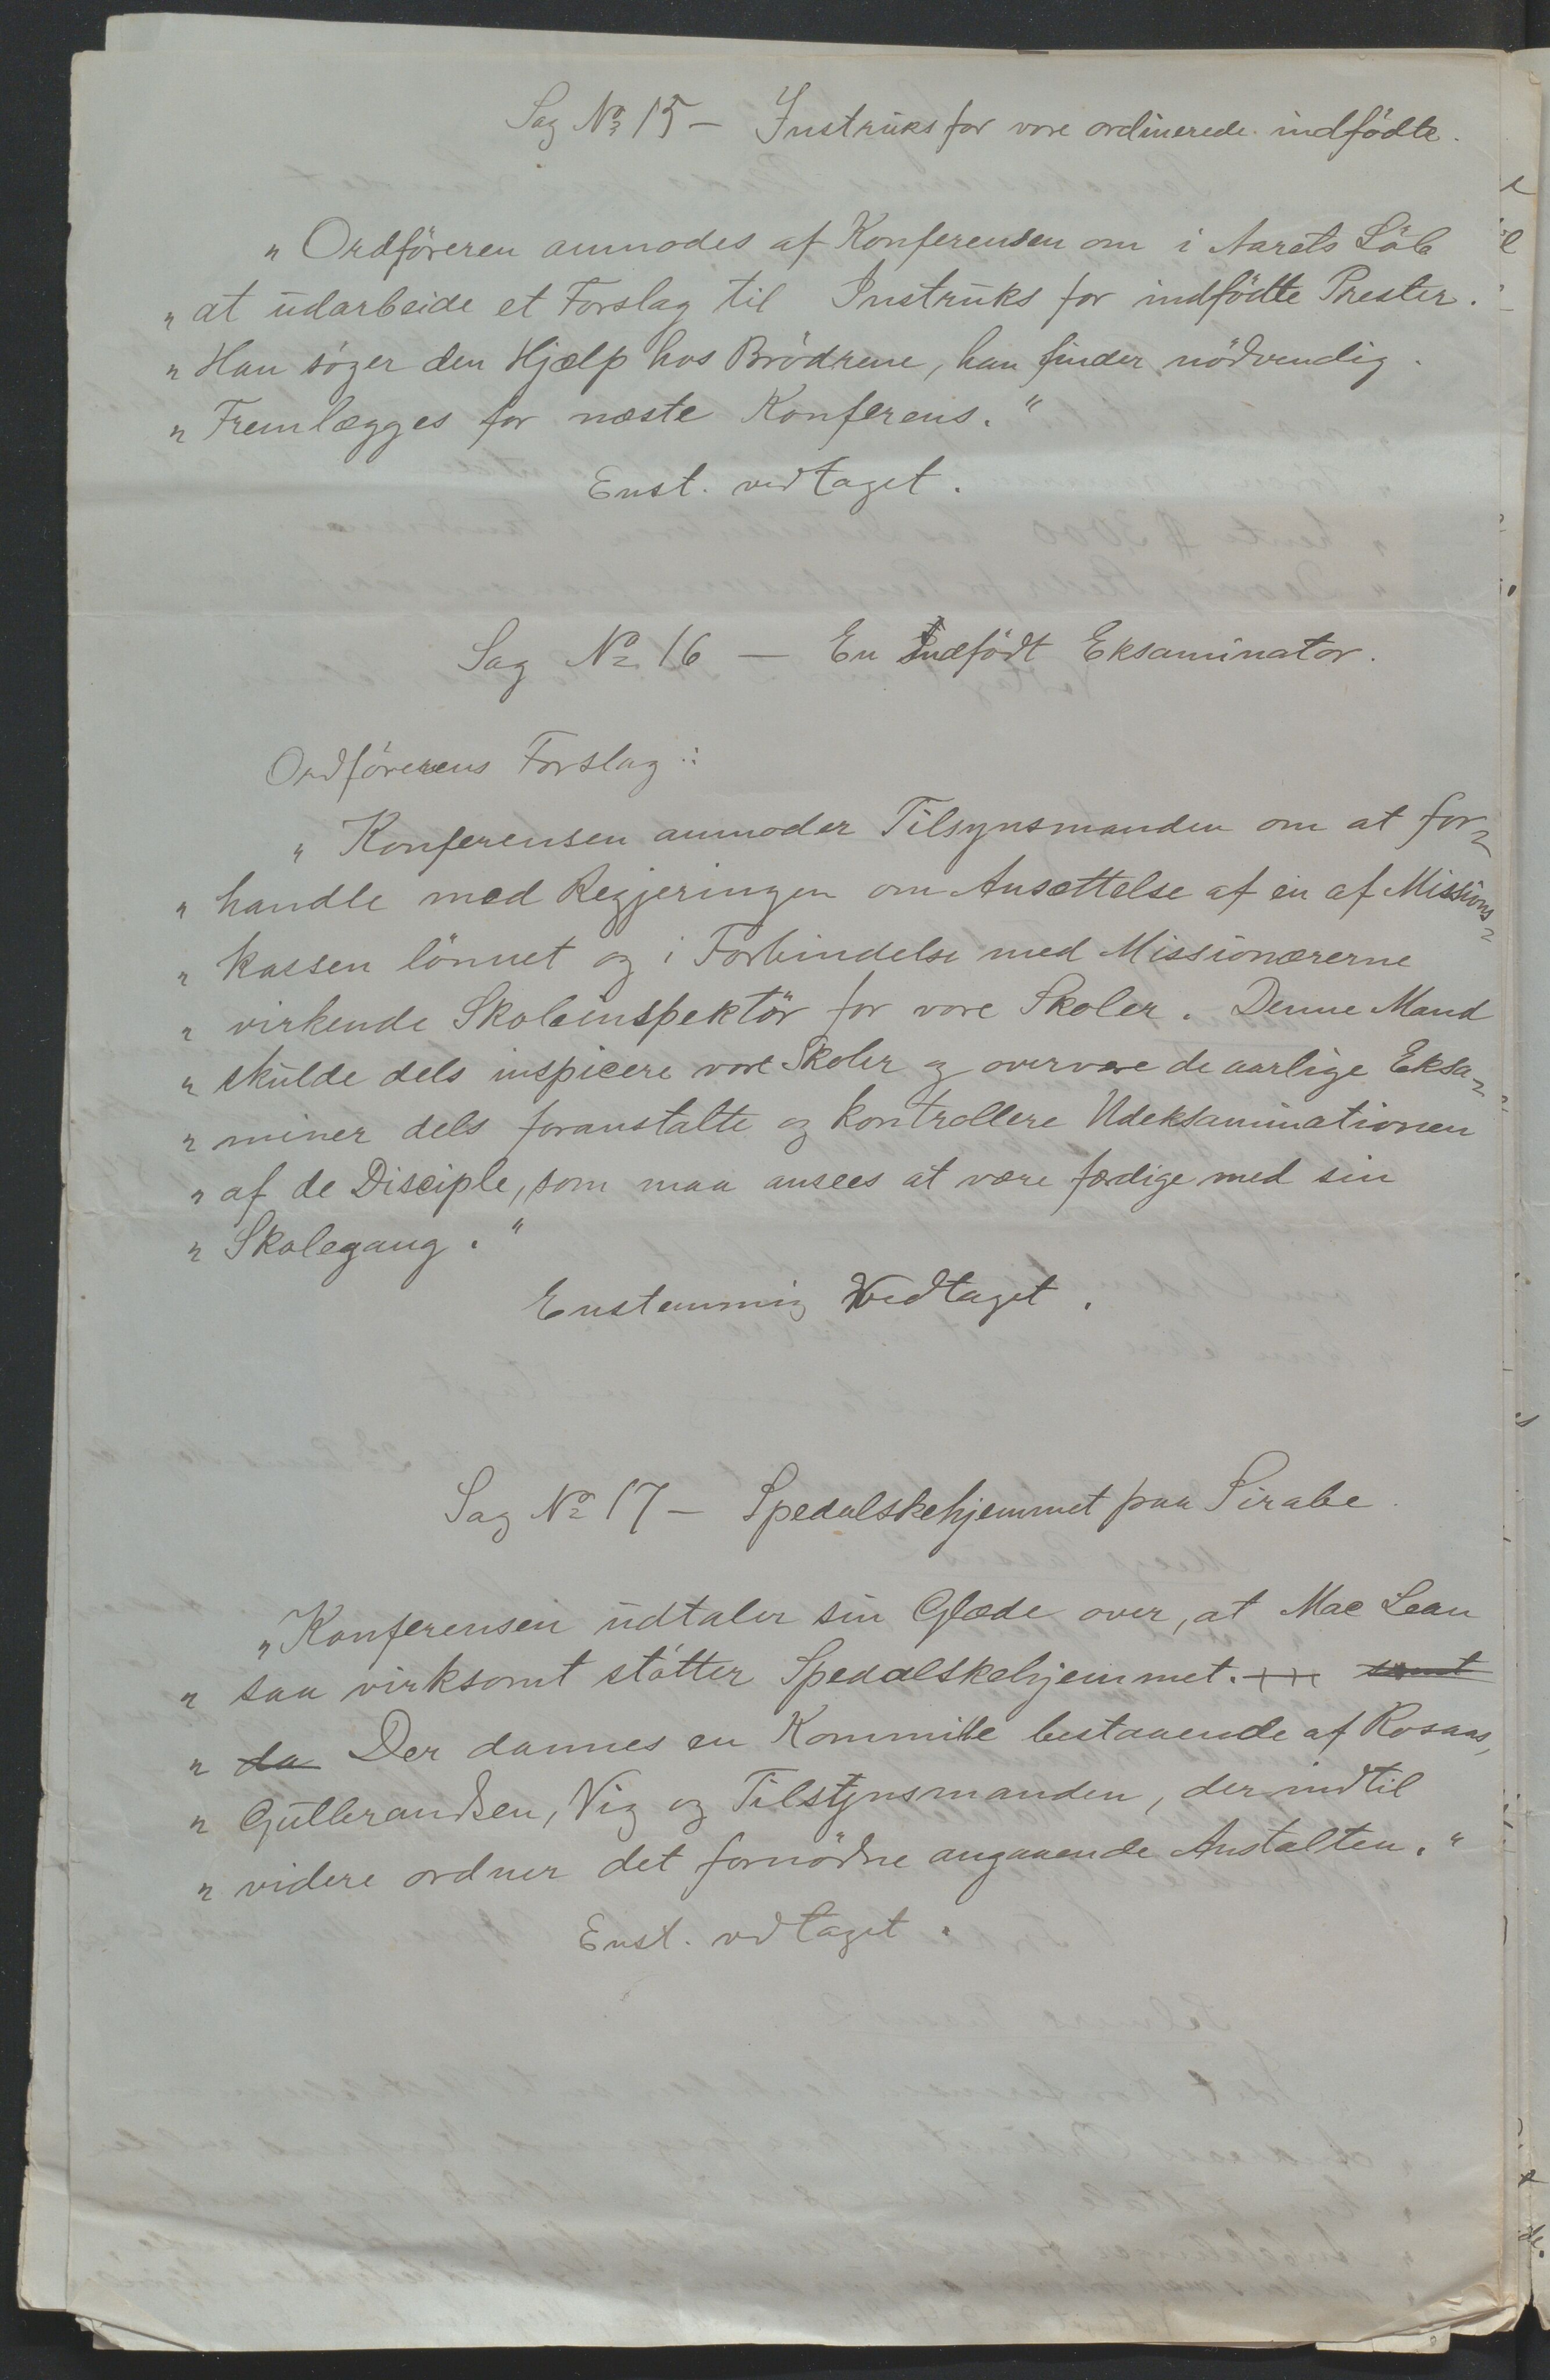 Sag No 15 – Instruks for vore ordinerede indfödte.
„ Ordföreren anmodes af Konferensen om i Aarets Löb
„ at udarbeide et Forslag til Instruks for indfödte Prester.
„ Han söger den Hjælp hos Brödrene, han finder nödvendig.
„ Fremlægges for næste Konferens."
Enst. vedtaget.
Sag No 16 – En Indfödt Eksaminator.
Ordförerens Forslag:
„ Konferensen anmoder Tilsynsmanden om at for-
„ handle med Regjeringen om Ansættelse af en af Missions-
„ kassen lönnet og i Forbindelse med Missionærerne
„ virkende Skoleinspektör for vore Skoler. Denne Mand
„ skulde dels inspicere vore Skoler og overvære de aarlige Eksa-
„ miner dels foranstalte og kontrollere Udeksaminationen
„ af de Disciple, som maa ansees at være færdige med sin
„ Skolegang."
Enstemmig Vedtaget.
Sag No 17 – Spedalskehjemmet paa Sirabe.
„ Konferensen udtaler sin Glæde over, at Mac Lean
„ saa virksomt stötter Spedalskehjemmet. samt
„ da Der dannes en Kommitte bestaaende af Rosaas,
„ Gulbrandsen, Vig og Tilsynsmanden, der indtil
„ videre ordner det fornödne angaaende Anstalten."
Enst. vedtaget.